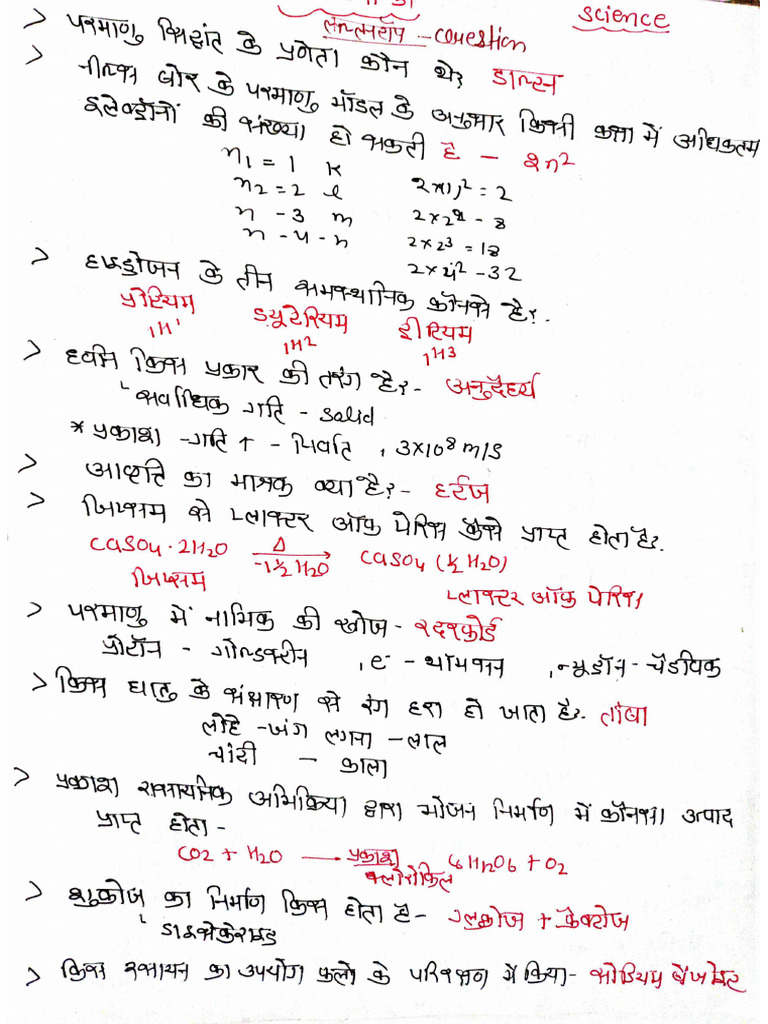 Science
question
> परमाणु सिद्धांत के प्रणेता कौन थे? डाल्टन
> नील्स बोर के परमाणु मॉडल के अनुसार किसी कक्षा में अधिकतम
इलेक्ट्रॉनों की संख्या हो सकती है - 2n²
n₁ = 1 K 2×1² = 2
n₂ = 2 l 2×2² - 8
n - 3 m 2×2³ = 18
n - 4 - n 2×4² - 32
> हाइड्रोजन के तीन समस्थानिक कौनसे है?
प्रोटियम ड्यूटेरियम ट्रीटियम
₁H¹ ₁H² ₁H³
> ध्वनि किस प्रकार की तरंग है? - अनुदैर्ध्य
└ सर्वाधिक गति - Solid
* प्रकाश - गति ↑ - निर्वात , 3×10⁸ m/s
> आवृति का मात्रक क्या है? - हर्टज
> जिप्सम से प्लास्टर ऑफ पेरिस कैसे प्राप्त होता है?
CaSO₄·2H₂O —Δ / -1½ H₂O→ CaSO₄ (½ H₂O)
जिप्सम प्लास्टर ऑफ पेरिस
> परमाणु में नाभिक की खोज - रदरफोर्ड
प्रोटॉन - गोल्डस्टीन , e⁻ - थॉमसन , न्यूट्रॉन - चैडविक
> किस धातु के संक्षारण से रंग हरा हो जाता है? तांबा
लोहे - जंग लगना - लाल
चांदी - काला
> प्रकाश रासायनिक अभिक्रिया द्वारा भोजन निर्माण में कौनसा उत्पाद
प्राप्त होता -
CO₂ + H₂O —प्रकाश / क्लोरोफिल→ C₆H₁₂O₆ + O₂
> सुक्रोज का निर्माण किस होता है - ग्लुकोज + फ्रैक्टोज
└ डाइसेकेराइड
> किस रसायन का उपयोग फलो के परिरक्षण में किया - सोडियम बेंजोएट